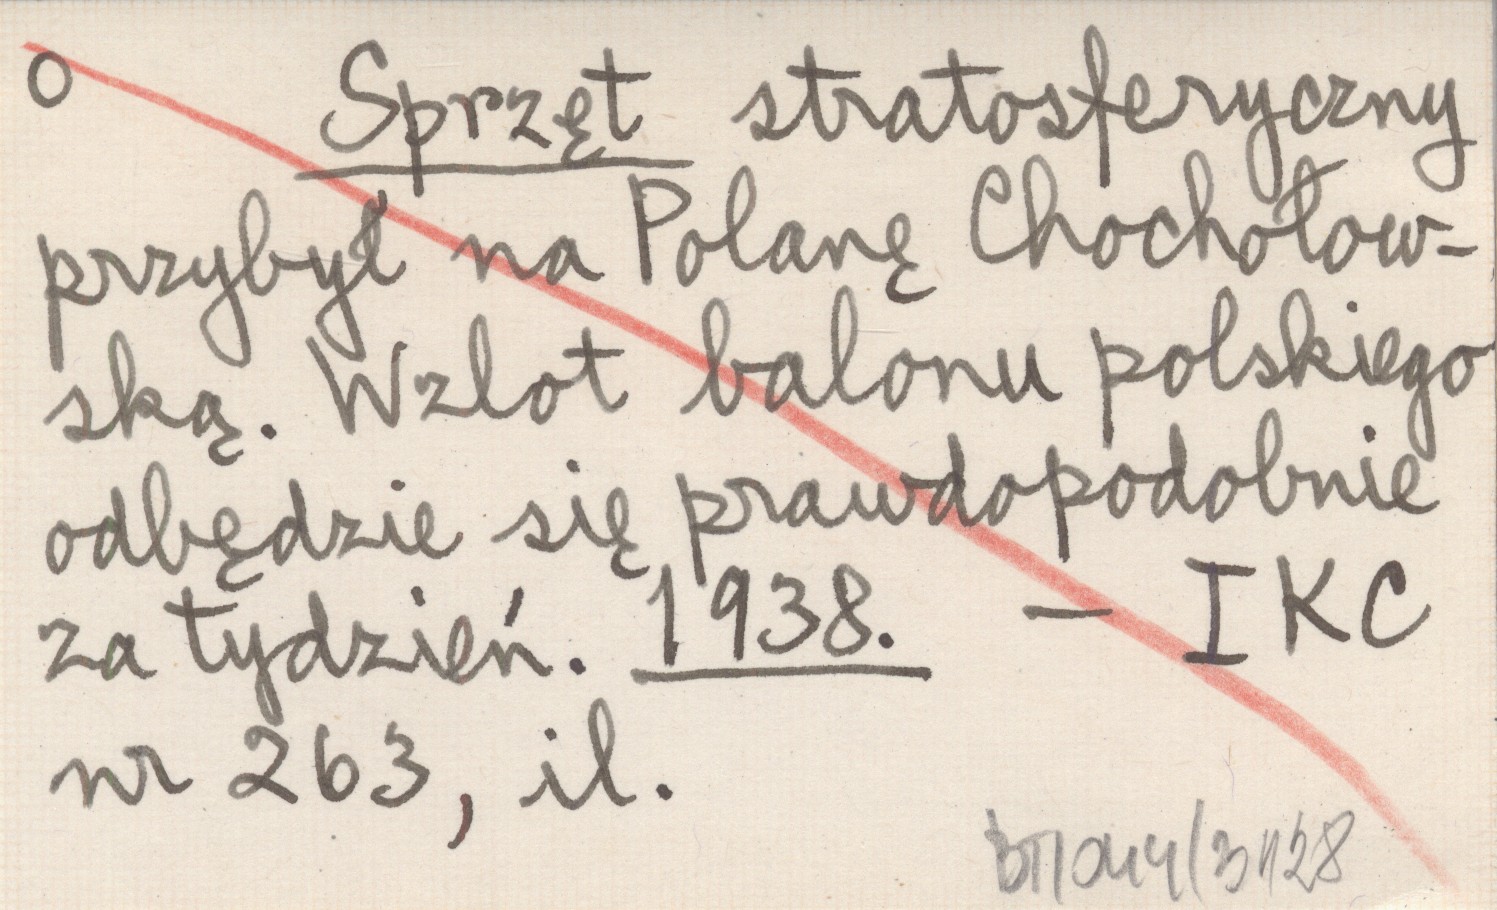 o Sprzęt stratosferyczny
przybył na Polanę Chochołow-
ską. Wzlot balonu polskiego
odbędzie się prawdopodobnie
za tydzień. 1938. – IKC
nr 263, il.